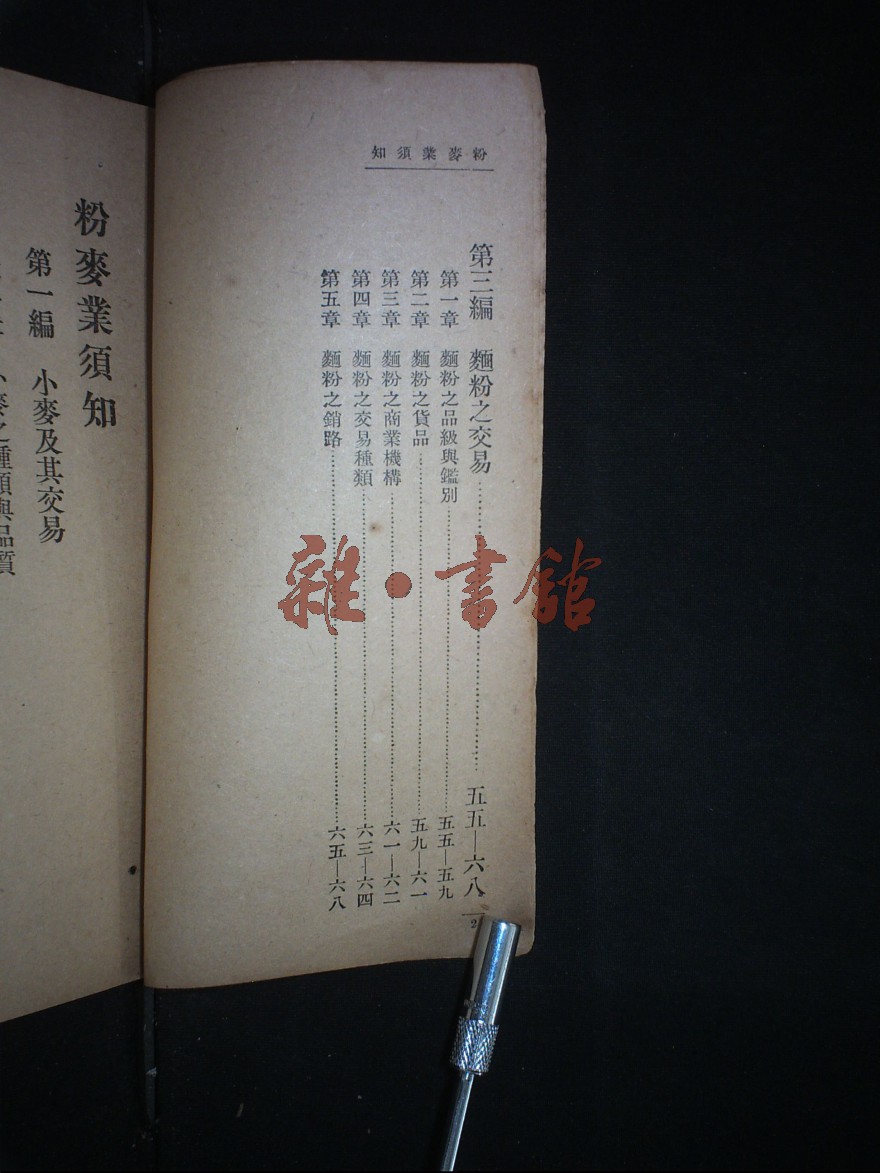 粉麥業須知
第三編　麵粉之交易………五五—六八
第一章　麵粉之品級與鑑別………五五—五九
第二章　麵粉之貨品………五九—六一
第三章　麵粉之商業機構………六一—六二
第四章　麵粉之交易種類………六三—六四
第五章　麵粉之銷路………六五—六八
2
粉麥業須知
第一編　小麥及其交易
小麥之種類與品質
雜·書館